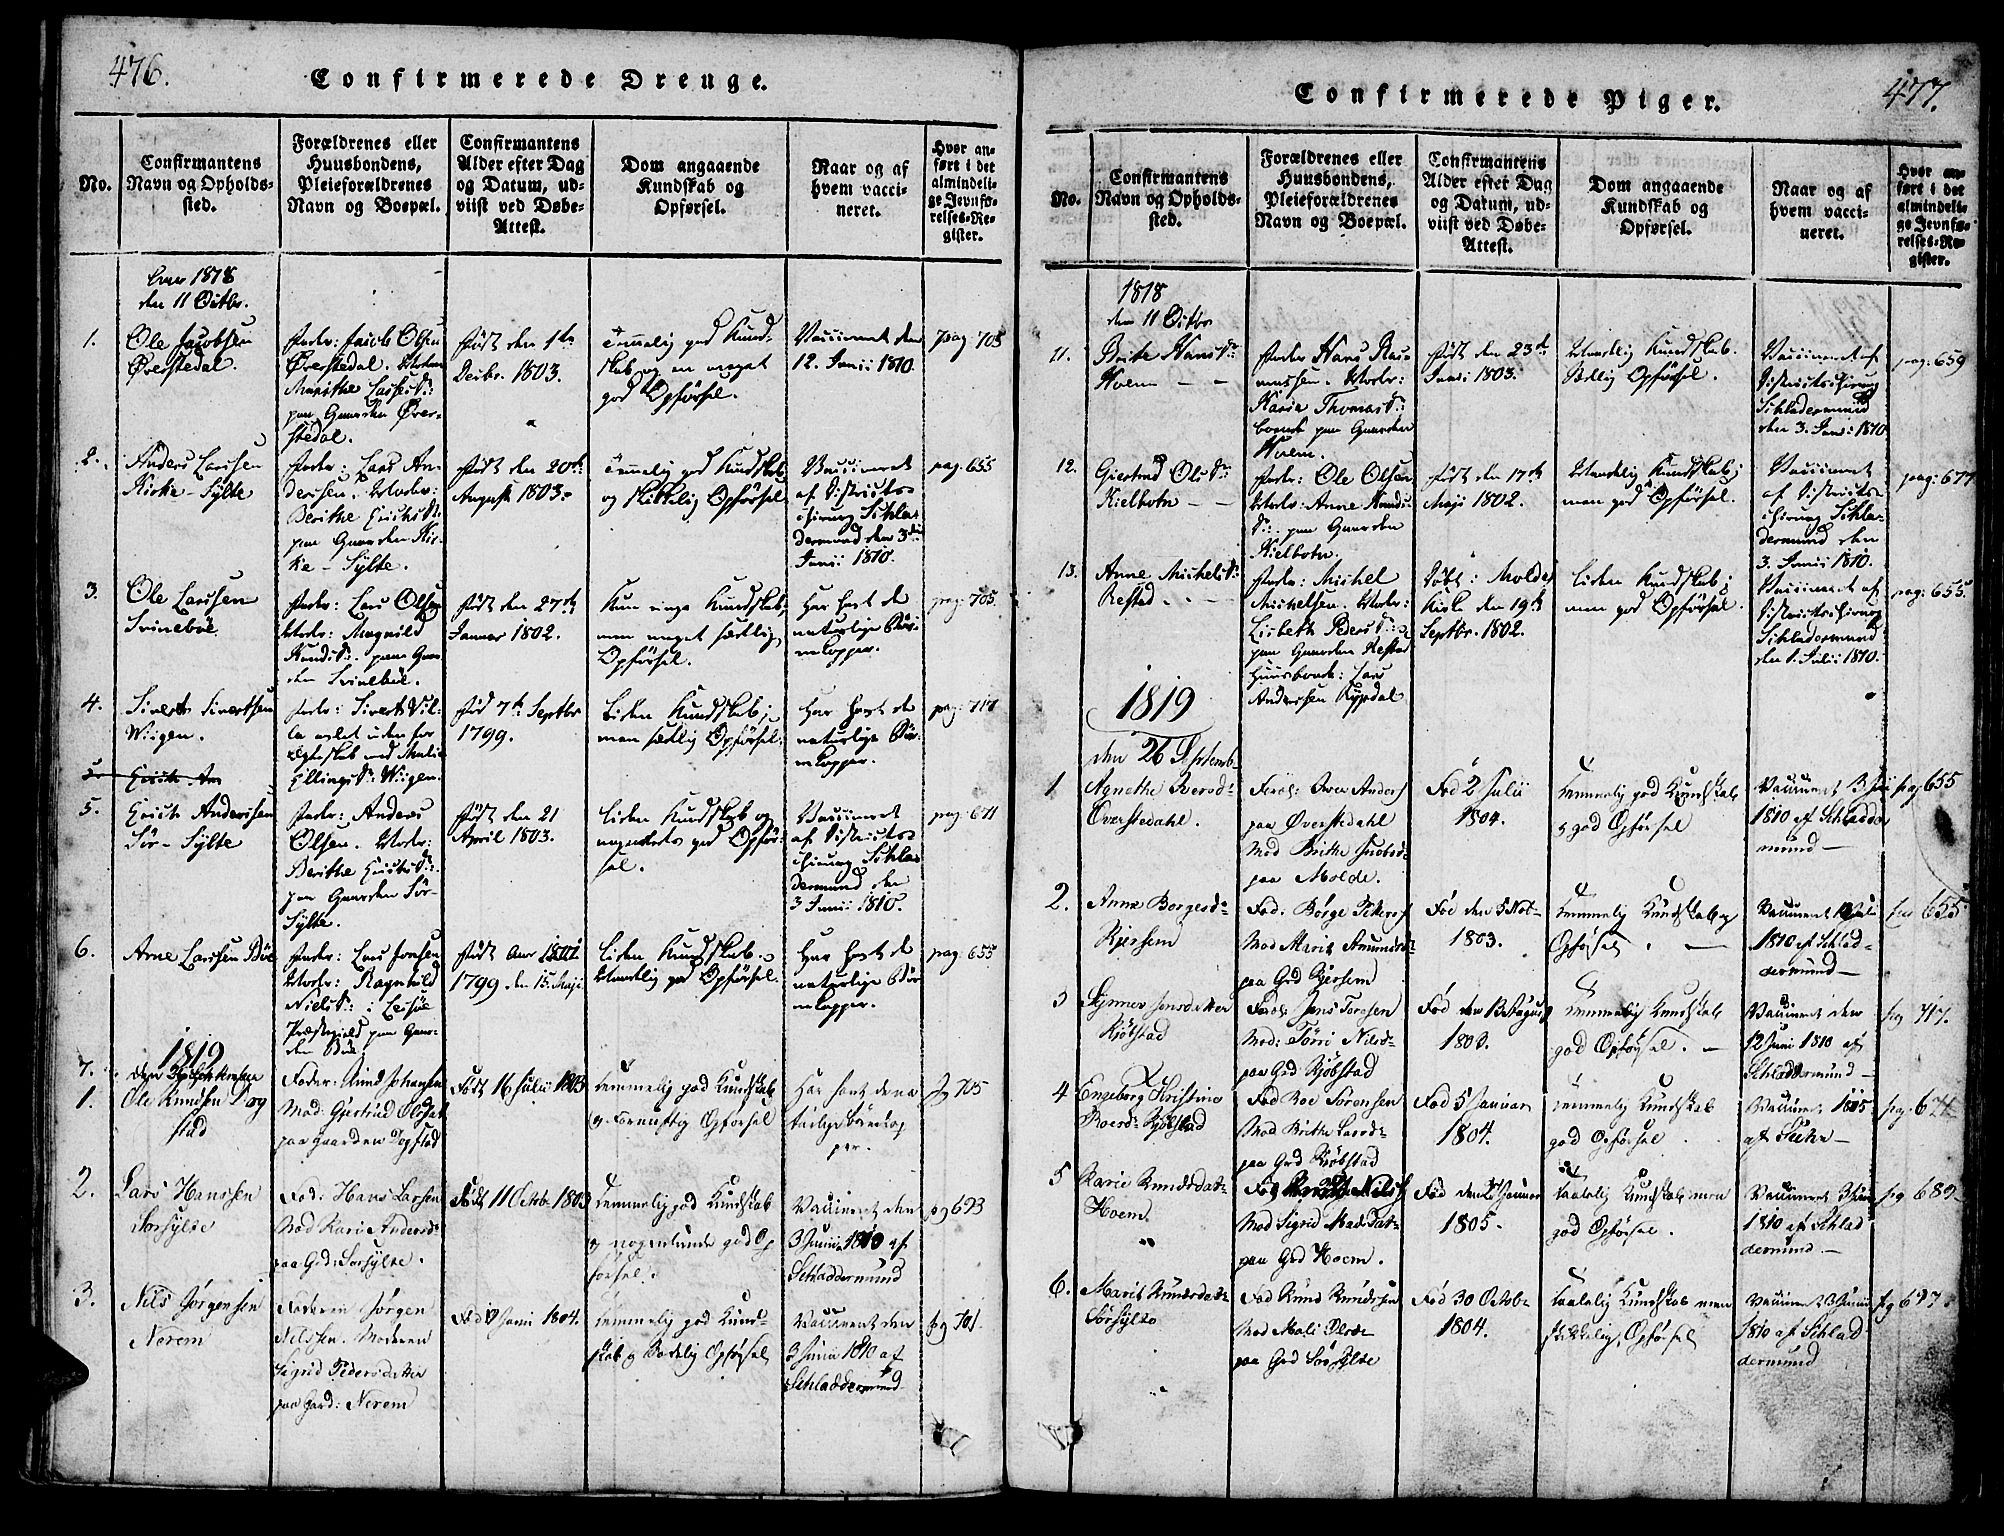 476.
Confirmerede Drenge.
No.
Confirmantens
Navn og Opholds-
sted.
Forældrenes eller
Huusbondens,
Pleieforældrenes
Navn og Boepæl.
Confirmantens
Alder efter Dag
og Datum, ud-
viist ved Døbe-
Attest.
Dom angaaende
Kundskab og
Opførsel.
Naar og af
hvem vacci-
neret.
Hvor an-
ført i det
almindeli-
ge Jevnfø-
relses-Re-
gister.
1818
den 11 Octbr.
1.
Ole Jacobsen
Øverstedal.
Fader: Jacob Olsen
Øverstedal. Moder:
Marithe Larsd:
paa Gaarden Øver-
stedal.
Født den 1te
Decbr. 1803.
Temmelig god Kund-
skab og en meget
god Opførsel.
Vaccineret den
12. Junii 1810.
pag 705
2.
Anders Larssen
Kirke-Sylte
Fader: Lars An-
derssen. Moder:
Berithe
paa Gaarden Kir-
ke-Sylte.
Født den 20de
August 1803.
Temmelig god Kundskab
og skikkelig Opførsel
Vaccineret
af Districts
chirurg Schla-
dermund den 3die
Junii 1810.
pag: 655
3.
Ole Larssen
Svinebøe
Fader: Lars Olsen
Moder: Magnild
Knudsd: paa Gaar-
den Svinebøe.
Født den 27de
Januar 1802.
Kun ringe Kundskab,
men meget sædelig
Opførsel.
Har havt de
naturlige Bør-
nekopper.
pag: 705.
4.
Sivert Sivertsen
Wiigen.
Fader: Sivert Vil-
la avlet uden for
Ægteskab med
Ellingsd: Wiigen.
Fød 7de Septbr
1799.
Liden Kundskab;
men sædelig Opførsel.
Har havt de
naturlige Bør-
nekopper.
pag: 717
5
5.
Erich Anderssen
Sør-Sylte
Fader: Anders
Olsen. Moder:
Berithe
paa Gaarden Sør-
Sylte.
Født den 21
April 1803.
Liden Kundskab og
god Opfør-
sel.
Vaccineret
af Districts
chirurg Schla-
dermund den
3 Junii 1810.
pag: 671
6.
Arne Larssen Bøe
Fader: Lars
Moder: Ragnild
Nielsd: i
Præstegield paa Gaar-
den Bøe
Født Aar
1799. den 15. Maji
Liden Kundskab.
god Opførsel.
Har havt de
naturlige Bør-
nekopper.
pag: 655
1819
7.
1.
Ole Knudsen Tog
stad
Fader: Knud Johansen
Mod: Gjertrud Olsdat
paa Gaarden Togstad
Født 16 Julii 1803
temmelig god Kundskab
og fornuftig Opførsel
Har havt de na-
turlige Børnekop-
per.
pg 705
2.
Lars Hanssen
Sørsylte
Fad: Hans Larsen
Mod Kari Andersd-
paa Grd: Sørsylte.
Født 11 Octob 1803
temmelig god Kundskab
og nogenlunde god Op
førsel.
Vaccineret den
3 Junii 1810 af
Schladdermund
pg 693
3.
Nils Jørgensen
Nerem
Faderen Jørgen
Nilssen. Moderen
Sigrid Pedersdatter
paa Gard: Nerem
Fød Junii 1804.
temmelig god Kund-
skab og Opførsel
Vaccineret den
3 Junii 1810 af
Schladdermund
pg 701.
477.
Confirmerede Piger.
No.
Confirmantens
Navn og Opholds-
sted.
Forældrenes eller
Huusbondens,
Pleieforældrenes
Navn og Boepæl.
Confirmantens
Alder efter Dag
og Datum, ud-
viist ved Døbe-
Attest.
Dom angaaende
Kundskab og
Opførsel.
Naar og af
hvem vacci-
neret.
Hvor an-
ført i det
almindeli-
ge Jevnfø-
relses-Re-
gister.
1818
den 11 Octbr
11.
Brite Hansd:
Holm
Fader Hans Ras-
mussen. Moder:
Karie Thomasd:
boende paa Gaarden
Holm.
Født den 23de
Junii 1803.
Kundskab.
Opførsel.
Vaccineret af
Districtschirurg
Schladermund
den 3. Junii 1810
pag: 659
12.
Giertrud Olsd:
Kielbotn
Fader: Ole Olsen
Moder: Anne Knuds
d: paa Gaarden
Kielbotn.
Født den 17de
Maji 1802.
Kundskab;
men god Opførsel.
Vaccineret
af Districts
chirurg Schla-
dermund den
3. Junii 1810.
pag: 677
13.
Anne Michelsd:
Restad
Fader: Michel
Michelsen. Moder:
Lisbeth Pedersd:
paa Gaarden Restad
Huusbonde: Lars
Anderssen Rypdal
Døbt: Molde
Kirke den 19de
Septbr. 1802.
Liden Kundskab;
men god Opførsel.
Vaccineret af
Districtschirurg
Schladermund
den 1. Julii 1810.
pag: 655.
1819
den 26 Septemb-
1
Agnethe Iversd-
Øverstedahl.
Forel: Iver Anders
paa Øverstedahl
Mod Brithe Jacobsd-
paa Molde.
Fød 2 Julii
1804.
temmelig god Kundskab
og god Opførsel
Vaccineret 3 Juni
1810 af Schladder
mund
pag 655
2.
Anne Børgesd-
Kjersem
Fad: Børge Pedersf
Mod Marit Amundsd-
paa Grd Kjersem
Fød den 5 Nov-
1803.
temmelig Kundskab og
Opførsel.
Vaccineret Juli
1810 af Schlad-
dermund
pag 655
3
Synnev Jensdatter
Kjøbstad
Forel: Jens
Mod: Nilsd-
paa Grd Kjøbstad
Fød den 13 August
1803.
temmelig Kundskab
god Opførsel.
Vaccineret den
12 Juni 1810 af
Schladdermund
pag 717.
4
Engeborg Kristine
Roesd- Kjøbstad
Fad Roe Sørensen
Mod Brithe Larsd-
paa Grd Kjøbstad
Fød 5 Januar
1804.
temmelig Kundskab
god Opførsel
Vaccineret 1805
af Suhr
pag. 671
5
Karie Knudsdat-
Hoem
Mod Sigrid Madsdat-
paa Grd Hoem.
Fød den Januar
1805.
taalelig Kundskab men
god Opførsel.
Vaccineret 3 Juni
1810 af Schlad
dermund
pag 689
6.
Marit Knudsdat-
Sørsylte
Fad Knud Knudsen
Mod Mali Olsd-
paa Grd Sørsylte
Fød 30 Octob-
1804.
taalelig Kundskab men
skikkelig Opførsel
Vaccineret 3 Junii
1810 af Schlad
dermund
pg 697